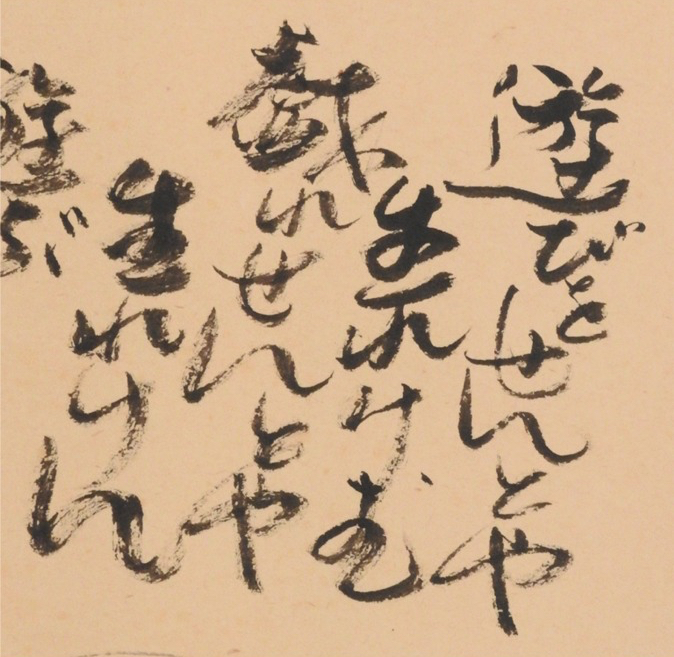 遊びをせんとや
生れけむ
戯れせんとや
生れけん
遊ぶ